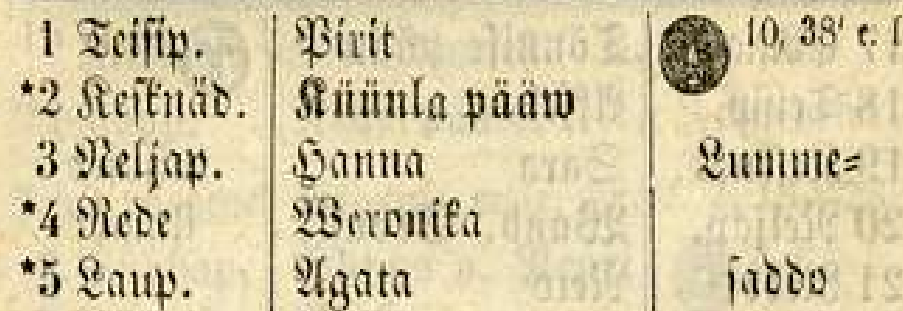 1 Teisip. Pirit 10, 38' e. l
*2 Kesknäd. Küünla pääw
3 Neljap. Hanna Lumme=
*4 Rede Weronika
*5 Laup. Agata saddo